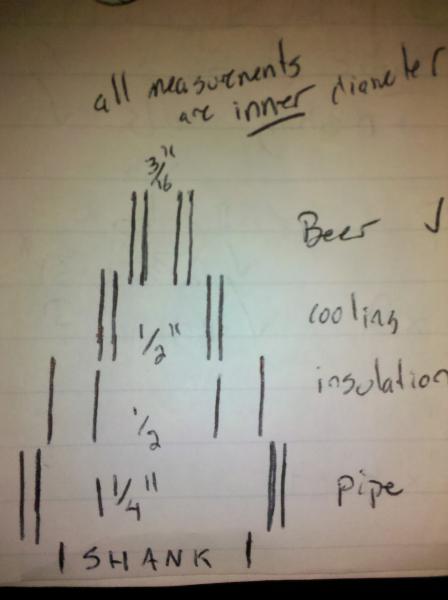 all measurments
are inner diameter
3/16"
Beer √
1/2"
cooling
insulation
1/2
1 1/4"
pipe
SHANK